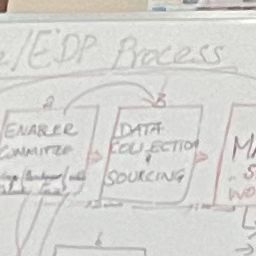 /EDP Process
2
B
ENABLER
COMMITTEE
DATA
COLLECTION
&
SOURCING
MA
S
WO